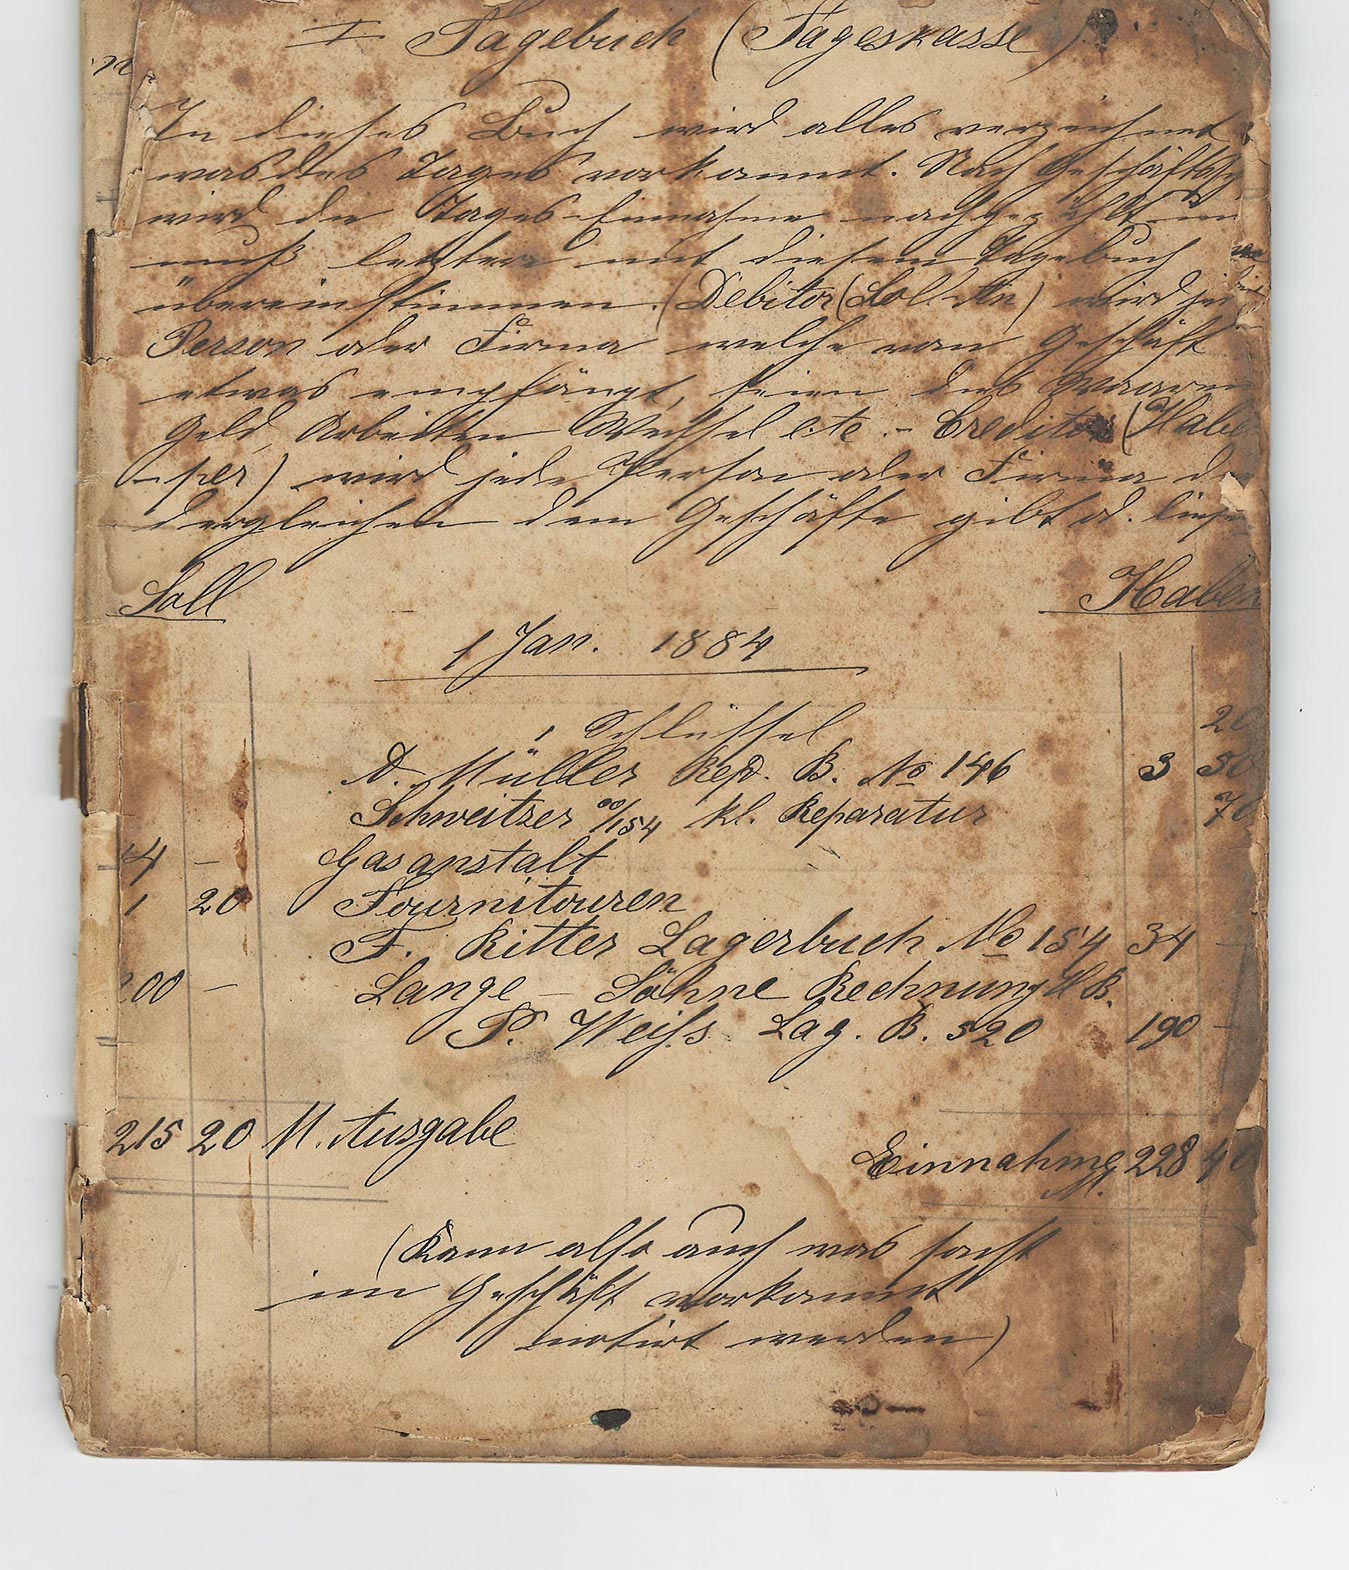 I Tagebuch (Tageskasse)
In dieses Buch wird alles verzeichnet
was des Tages vorkommt. Nach Geschäftsschl
wird die Tages-Einnahme nachgezählt un
muß letztere mit diesem Tagebuch
übereinstimmen. (Debitor (Soll An) wird je
Person oder Firma welche vom Geschäft
etwas empfängt, seien dies Waaren
Geld, Arbeiten Wechsel etc. - Creditor (Haben
-per) wird jede Person oder Firma d
dergleichen dem Geschäfte gibt od. liefe
Soll Haben
1 Jan. 1884
1 Schlüssel 20
A. Müller Rep. B. No 146 3 50
Schweitzer %154 kl. Reparatur 70
14 — Gasanstalt
1 20 Fournitouren
F. Ritter Lagerbuch No 154 34 —
200 — Lange — Söhne Rechnung H B.
P. Weiss Lag. B. 520 190 —
215 20 M. Ausgabe
Einnahme M. 228 40
(Kann also auch was sonst
im Geschäft vorkommt
notirt werden)